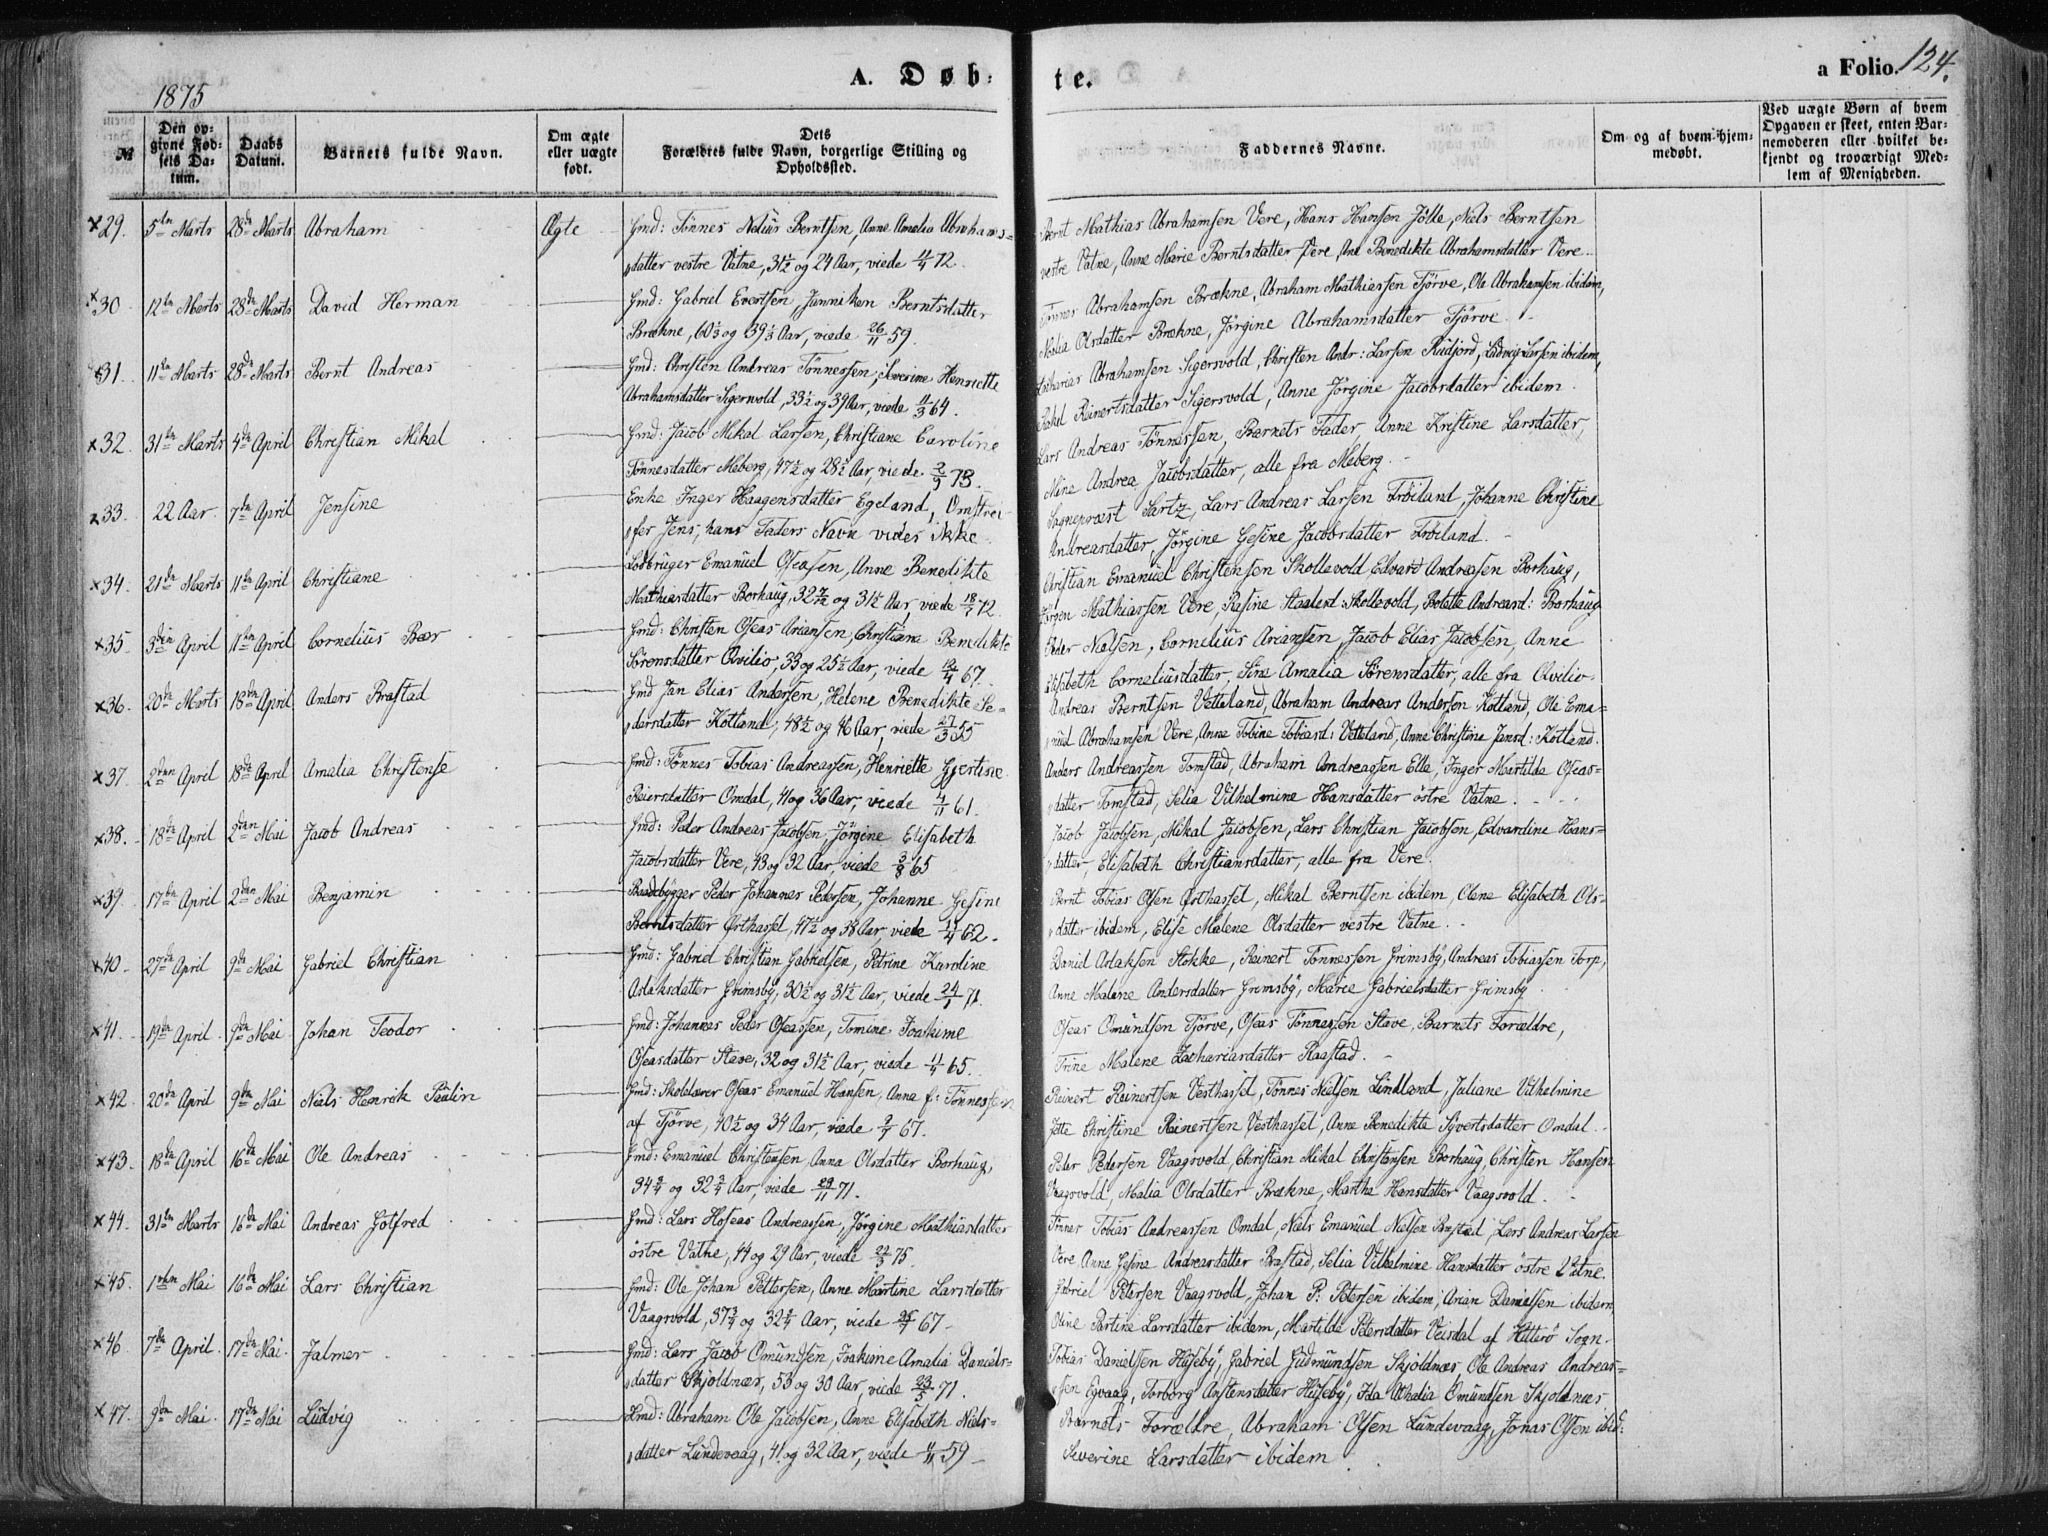 A. Døb-
te.
a Folio. 124.
1875
№
Den op-
givne Fød-
sels Da-
tum.
Daabs
Datum.
Barnets fulde Navn.
Om ægte
eller uægte
født.
Dets
Forældres fulde Navn, borgerlige Stilling og
Opholdssted.
Faddernes Navne.
Om og af hvem hjem-
medøbt.
Ved uægte Børn af hvem
Opgaven er skeet, enten Bar-
nemoderen eller hvilket be-
kjendt og troværdigt Med-
lem af Menigheden.
×29. 5te Marts 28de Marts Abraham Ægte Gmd: Tönnes Nelius Berntsen, Anne Amalia Abrahams-
datter vestre Vatne, 31½ og 24 Aar, viede 11/4 72.
Bernt Mathias Abrahamsen Vere, Hans Hansen Jölle, Niels Berntsen
vestre Vatne, Anne Marie Berntsdatter Vere, Ane Benedikte Abrahamsdatter Vere.
×30 12te Marts 28de Marts David Herman Gmd: Gabriel Evertsen, Janniken Berntsdatter
Brækne, 60⅓ og 39⅓ Aar, viede 26/11 59.
Tönnes Abrahamsen Brækne, Abraham Mathiassen Tjörve, Ole Abrahamsen ibidem,
Malia Olsdatter Brækne, Jörgine Abrahamsdatter Tjörve.
×31 11te Marts 28de Marts Bernt Andreas Gmd: Christen Andreas Tönnessen, Severine Henriette
Abrahamsdatter Sigersvold, 33½ og 39 Aar, viede 11/3 64.
Zacharias Abrahamsen Sigersvold, Christen Andr: Larsen Rudjord, Ludvig Larsen ibidem,
Rakel Reinertsdatter Sigersvold, Anne Jörgine Jacobsdatter ibidem.
×32. 31te Marts 4de April Christian Mikal Gmd: Jacob Mikal Larsen, Christiane Caroline
Tönnesdatter Meberg, 47½ og 28½ Aar, viede 2/9 73.
Lars Andreas Tönnessen, Barnets Fader, Anne Kristine Larsdatter,
Mine Andrea Jacobsdatter, alle fra Meberg.
×33. 22 Aar. 7de April Jensine Enke Inger Haagensdatter Egeland, Omstrei-
fer Jens, hans Faders Navn vides ikke.
Sognepræst Sartz, Lars Andreas Larsen Fröiland, Johanne Christine
Andreasdatter, Jörgine Gesine Jacobsdatter Fröiland.
×34. 21de Marts 11te April Christiane Lodbruger Emanuel Oseasen, Anne Benedikte
Mathiasdatter Borhaug, 32 og 31½ Aar viede 18/7 72.
Christian Emanuel Christensen Skollevold, Edvard Andreasen Borhaug,
Jörgen Mathiassen Vere, Rasine Staalesd: Skollevold, Bolette Andreasd: Borhaug
×35. 3die April 11te April Cornelius Bær Gmd: Christen Oseas Ariansen, Christiane Benedikte
Sörensdatter Qvilio, 33 og 25½ Aar, viede 12/4 67.
Peder Nielsen, Cornelius Ariansen, Jacob Elias Jacobsen, Anne
Elisabeth Corneliusdatter, Sine Amalia Sörensdatter, alle fra Qvilio.
×36. 20de Marts 18de April Anders Brastad Gmd Jan Elias Andersen, Helene Benedikte Pe-
dersdatter Kötland, 48½ og 46 Aar, viede 27/3 55
Andreas Berntsen Vetteland, Abraham Andreas Andersen Kötland, Ole Ema-
nuel Abrahamsen Vere, Anne Tobine Tobiasd: Vetteland, Anne Christine Jansd: Kötland.
×37. 2den April 18de April Amalia Christense Gmd: Tönnes Tobias Andreassen, Henriette Gjertine
Reiersdatter Omdal, 41 og 36 Aar, viede 4/11 61.
Anders Andreassen Tomstad, Abraham Andreassen Elle, Inger Martilde Oseas-
datter Tomstad, Selia Vilhelmine Hansdatter östre Vatne.
×38. 18de April 2den Mai Jacob Andreas Gmd: Peder Andreas Jacobsen, Jörgine Elisabeth
Jacobsdatter Vere, 43 og 32 Aar, viede 3/8 65
Jacob Jacobsen, Mikal Jacobsen, Lars Christian Jacobsen, Edvardine Hans-
datter, Elisabeth Christiansdatter, alle fra Vere.
×39. 17de April 2den Mai Benjamin Baadebygger Peder Johannes Pedersen, Johanne Gesine
Berntsdatter Østhassel, 47½ og 38 Aar, viede 11/4 62.
Bernt Tobias Olsen Østhassel, Mikal Berntsen ibidem, Olene Elisabeth Ols-
datter ibidem, Elise Malene Olsdatter vestre Vatne.
×40. 27de April 9de Mai Gabriel Christian Gmd: Gabriel Christian Gabrielsen, Petrine Karoline
Aslaksdatter Grimsby, 30½ og 31½ Aar, viede 24/1 71.
Daniel Aslaksen Stokke, Reinert Tönnessen Grimsby, Andreas Tobiassen Torp,
Anne Malene Andersdatter Grimsby, Marie Gabrielsdatter Grimsby.
×41. 19de April 9de Mai Johan Teodor Gmd: Johannes Peder Oseassen, Tomine Joakime
Oseasdatter Stave, 32 og 31½ Aar, viede 11/4 65.
Oseas Omundsen Tjörve, Oseas Tönnessen Stave, Barnets Forældre,
Trine Malene Zachariasdatter Raastad.
×42. 20de April 9de Mai Niels Henrik Paulin Gmd: Skolelærer Oseas Emanuel Hansen, Anna f: Tönnessen
af Tjörve, 40½ og 34 Aar, viede 67.
Reinert Reinertsen Vesthassel, Tönnes Nielsen Lindland, Juliane Vilhelmine
Jette Christine Reinertsen Vesthassel, Anne Benedikta Syvertsdatter Omdal.
×43. 18de April 16de Mai Ole Andreas Gmd: Emanuel Christensen, Anna Olsdatter Borhaug,
34¾ og 32¾ Aar, viede 29/11 71.
Peder Pedersen Vaagsvold, Christian Mikal Christensen Borhaug, Christen Hansen
Vaagsvold, Malia Olsdatter Brækne, Martha Hansdatter Vaagsvold.
×44. 31te Marts 16de Mai Andreas Gotfred Gmd: Lars Hoseas Andreassen, Jörgine Mathiasdatter
östre Vatne, 44 og 29 Aar, viede 22/3 75.
Tönnes Tobias Andreassen Omdal, Niels Emanuel Nielsen Brastad, Lars Andreas Larsen
Vere Anne Gesine Andreasdatter Brastad, Selia Vilhelmine Hansdatter östre Vatne.
×45. 1ste Mai 16de Mai Lars Christian Gmd: Ole Johan Pettersen, Anne Martine Larsdatter
Vaagsvold, 37¾ og 32¾ Aar, viede 67.
Gabriel Petersen Vaagsvold, Johan P. Petersen ibidem, Arian Danielsen ibidem
Oline Partine Larsdatter ibidem, Martilde Petersdatter Veisdal af Hitterö Sogn.
×46. 7de April. 17de Mai. Jalmer Gmd: Lars Jacob Omundsen, Joakime Amalia Daniels-
datter Skjoldnæs, 53 og 30 Aar, viede 23/5 71.
Tobias Danielsen Huseby, Gabriel Gudmundsen Skjoldnæs, Ole Andreas Andreas-
sen Egvaag, Torborg Anstensdatter Huseby, Ida Athalia Omundsen Skjoldnæs.
×47. 9de Mai. 17de Mai Ludvig Gmd: Abraham Ole Jacobsen, Anne Elisabeth Niels-
datter Lundevaag, 41 og 32 Aar, viede 4/11 59
Barnets Forældre, Abraham Olsen Lundevaag, Jonas Olsen ibid:
Severine Larsdatter ibidem